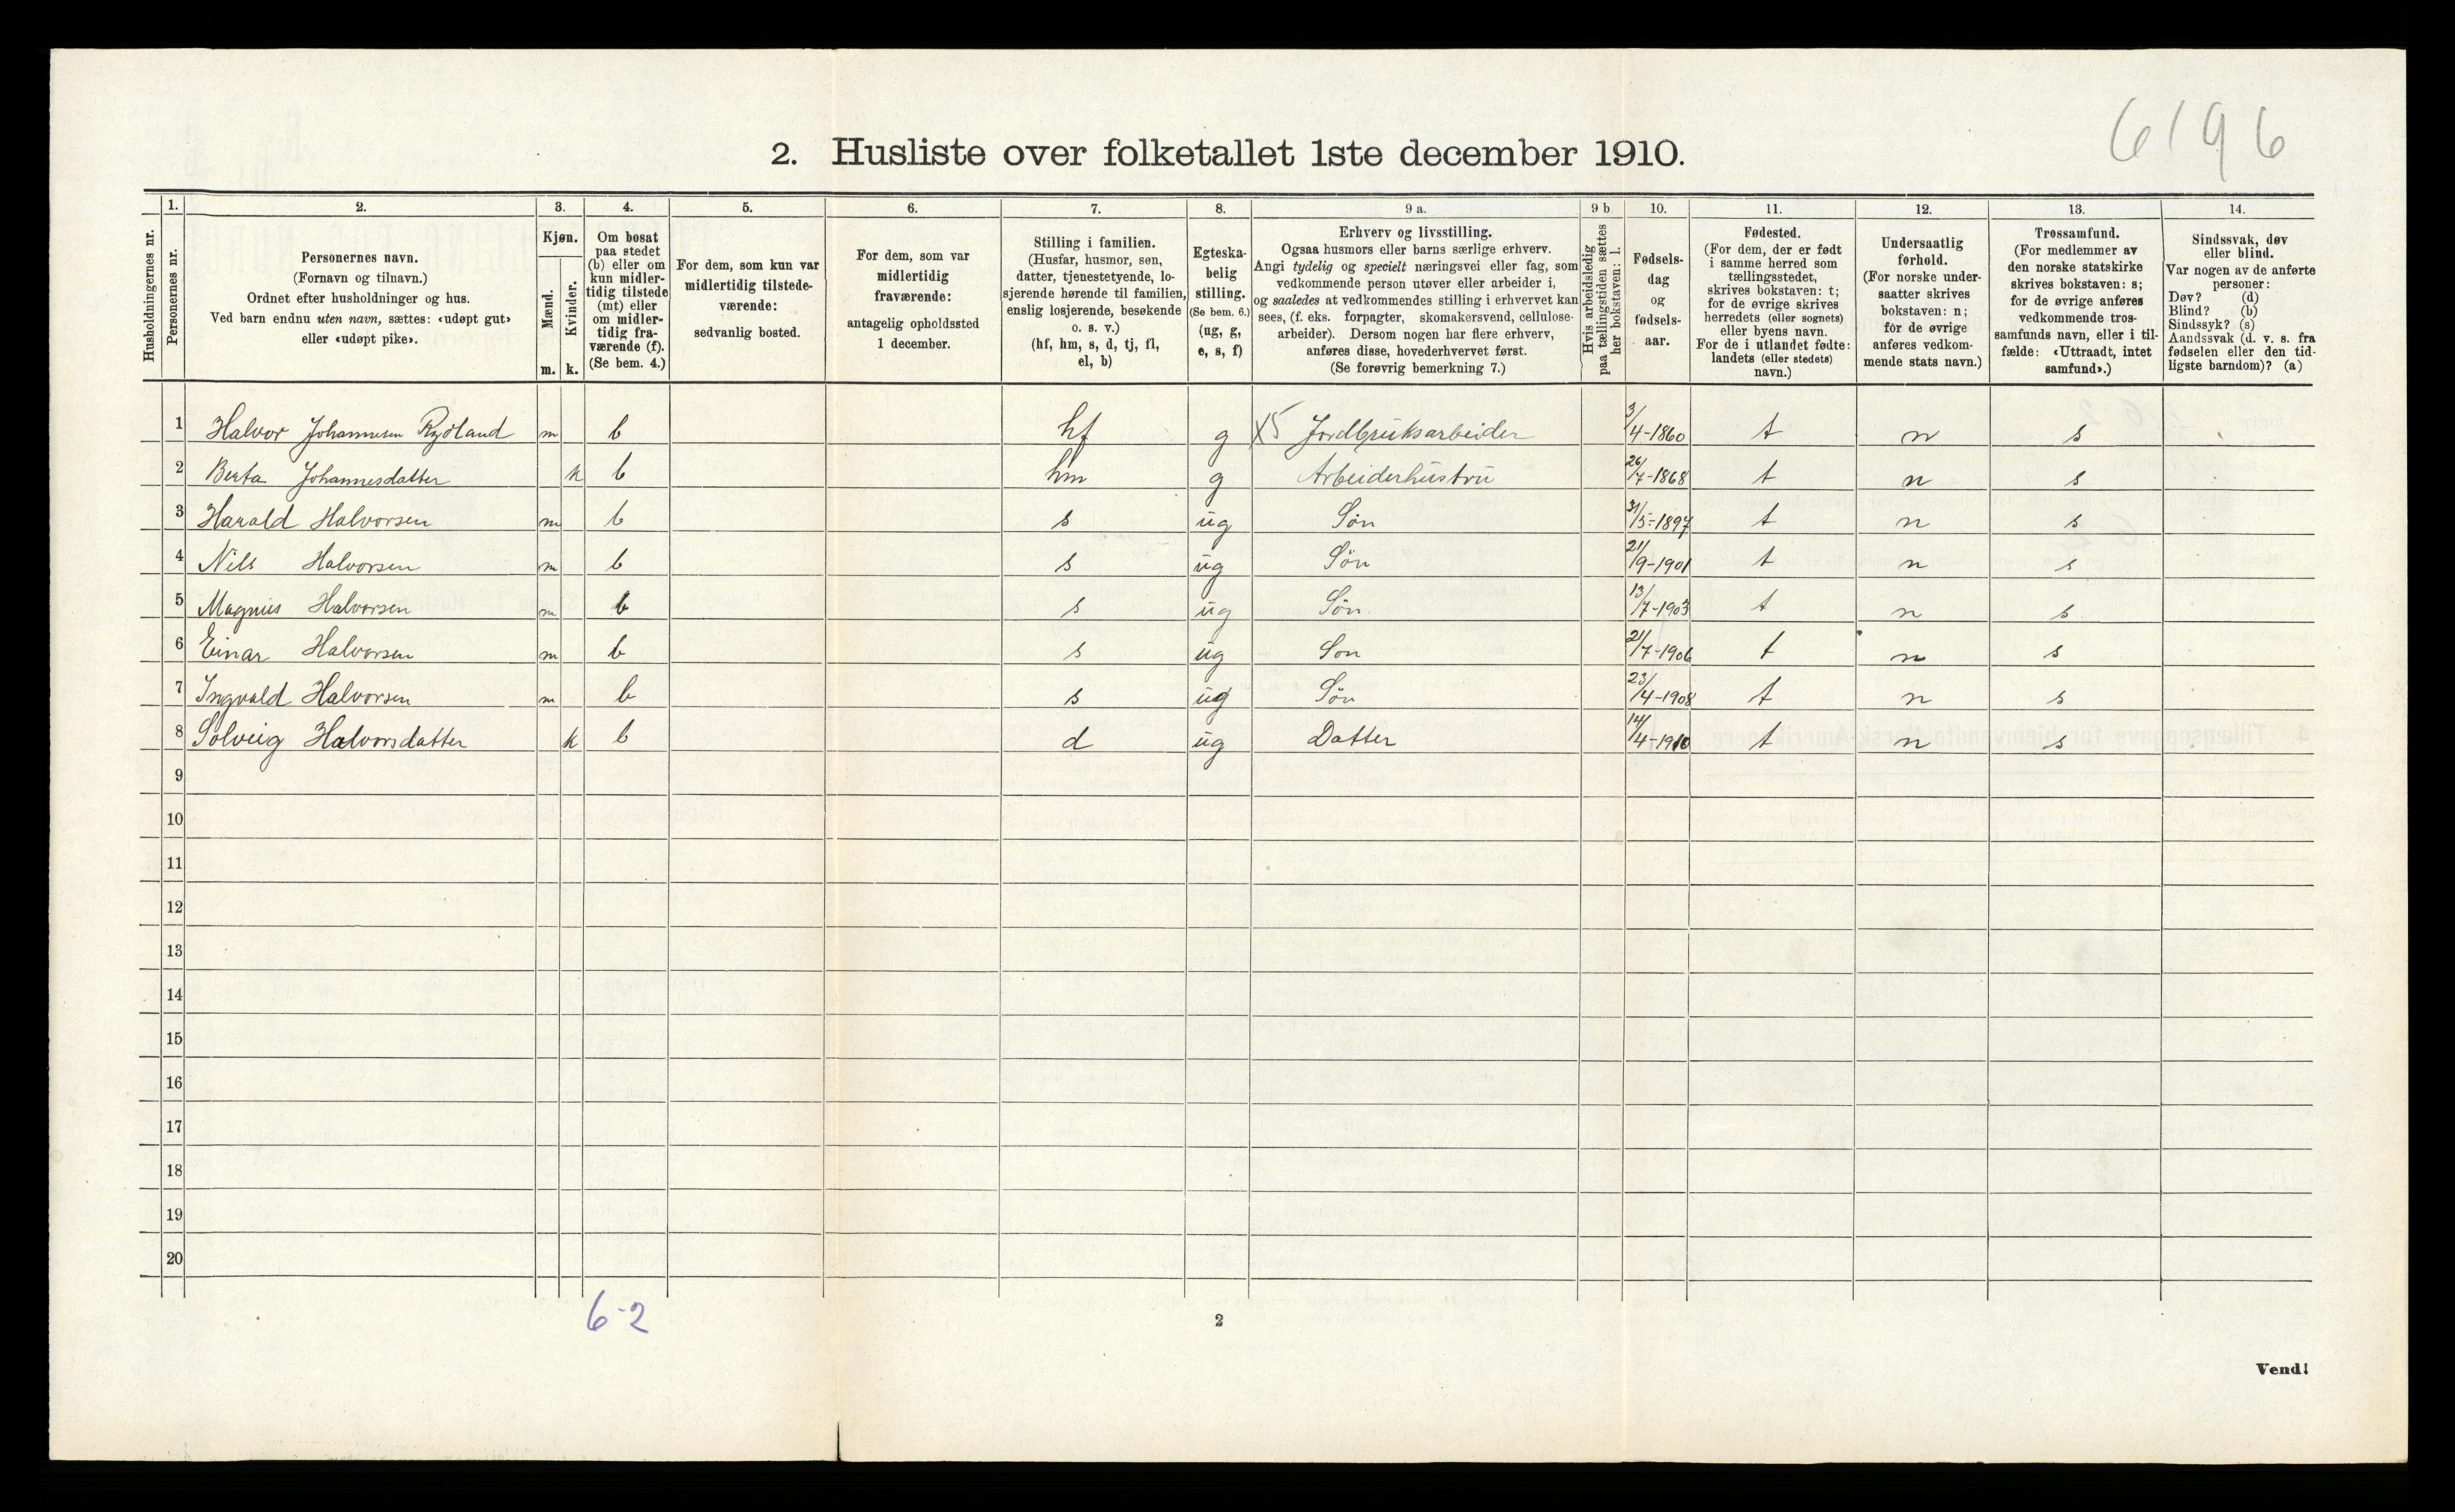 6196
2. Husliste over folketallet 1ste december 1910.
Husholdningernes nr.
1.
Personernes nr.
2.
Personernes navn.
(Fornavn og tilnavn.)
Ordnet efter husholdninger og hus.
Ved barn endnu uten navn, sættes: «udøpt gut»
eller «udøpt pike».
3.
Kjøn.
Mænd.
m.
Kvinder.
k.
4.
Om bosat
paa stedet
(b) eller om
kun midler-
tidig tilstede
(mt) eller
om midler-
tidig fra-
værende (f).
(Se bem. 4.)
5.
For dem, som kun var
midlertidig tilstede-
værende:
sedvanlig bosted.
6.
For dem, som var
midlertidig
fraværende:
antagelig opholdssted
1 december.
7.
Stilling i familien.
(Husfar, husmor, søn,
datter, tjenestetyende, lo-
sjerende hørende til familien,
enslig losjerende, besøkende
o. s. v.)
(hf, hm, s, d, tj, fl,
el, b)
8.
Egteska-
belig
stilling.
(Se bem. 6.)
(ug, g,
e, s, f)
9 a.
Erhverv og livsstilling.
Ogsaa husmors eller barns særlige erhverv.
Angi tydelig og specielt næringsvei eller fag, som
vedkommende person utøver eller arbeider i,
og saaledes at vedkommendes stilling i erhvervet kan
sees, (f. eks. forpagter, skomakersvend, cellulose-
arbeider). Dersom nogen har flere erhverv,
anføres disse, hovederhvervet først.
(Se forøvrig bemerkning 7.)
9 b
Hvis arbeidsledig
paa tællingstiden sættes
her bokstaven: l.
10.
Fødsels-
dag
og
fødsels-
aar.
11.
Fødested.
(For dem, der er født
i samme herred som
tællingsstedet,
skrives bokstaven: t;
for de øvrige skrives
herredets (eller sognets)
eller byens navn.
For de i utlandet fødte:
landets (eller stedets)
navn.)
12.
Undersaatlig
forhold.
(For norske under-
saatter skrives
bokstaven: n;
for de øvrige
anføres vedkom-
mende stats navn.)
13.
Trossamfund.
(For medlemmer av
den norske statskirke
skrives bokstaven: s;
for de øvrige anføres
vedkommende tros-
samfunds navn, eller i til-
fælde: «Uttraadt, intet
samfund».)
14.
Sindssvak, døv
eller blind.
Var nogen av de anførte
personer:
Døv? (d)
Blind? (b)
Sindssyk? (s)
Aandssvak (d. v. s. fra
fødselen eller den tid-
ligste barndom)? (a)
1 Halvor Johannesen Rydland m b hf g X5 Jordbruksarbeider 3/4-1860 t n s
2 Berta Johannesdatter k b hm g Arbeiderhustru 26/7-1868 t n s
3 Harald Halvorsen m b s ug Søn 31/5-1897 t n s
4 Nils Halvorsen m b s ug Søn 21/9-1901 t n s
5 Magnus Halvorsen m b s ug Søn 13/7-1903 t n s
6 Einar Halvorsen m b s ug Søn 21/7-1906 t n s
7 Ingvald Halvorsen m b s ug Søn 23/4-1908 t n s
8 Solveig Halvorsdatter k b d ug Datter 14/4-1910 t n s
9
10
11
12
13
14
15
16
17
18
19
20
6-2
2
Vend!